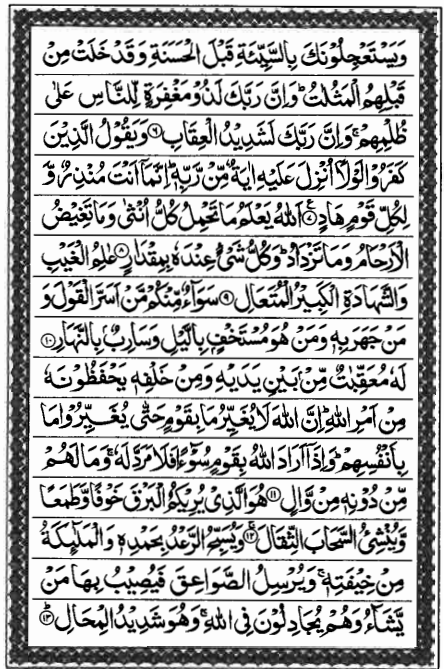 وَيَسْتَعْجِلُوْنَكَ بِالسَّيِّئَةِ قَبْلَ الْحَسَنَةِ وَقَدْ خَلَتْ مِنْ
قَبْلِهِمُ الْمَثُلٰتُ ؕ وَاِنَّ رَبَّكَ لَذُوْ مَغْفِرَةٍ لِّلنَّاسِ عَلٰى
ظُلْمِهِمْ ۚ وَاِنَّ رَبَّكَ لَشَدِيْدُ الْعِقَابِ ۝۶ وَيَقُوْلُ الَّذِيْنَ
كَفَرُوْا لَوْلَاۤ اُنْزِلَ عَلَيْهِ اٰيَةٌ مِّنْ رَّبِّهٖ ؕ اِنَّمَاۤ اَنْتَ مُنْذِرٌ وَّ
لِكُلِّ قَوْمٍ هَادٍ ۝۷ اَللّٰهُ يَعْلَمُ مَا تَحْمِلُ كُلُّ اُنْثٰى وَمَا تَغِيْضُ
الْاَرْحَامُ وَمَا تَزْدَادُ ؕ وَكُلُّ شَيْءٍ عِنْدَهٗ بِمِقْدَارٍ ۝۸ عٰلِمُ الْغَيْبِ
وَالشَّهَادَةِ الْكَبِيْرُ الْمُتَعَالِ ۝۹ سَوَآءٌ مِّنْكُمْ مَّنْ اَسَرَّ الْقَوْلَ وَ
مَنْ جَهَرَ بِهٖ وَمَنْ هُوَ مُسْتَخْفٍۭ بِالَّيْلِ وَسَارِبٌۢ بِالنَّهَارِ ۝۱۰
لَهٗ مُعَقِّبٰتٌ مِّنْۢ بَيْنِ يَدَيْهِ وَمِنْ خَلْفِهٖ يَحْفَظُوْنَهٗ
مِنْ اَمْرِ اللّٰهِ ؕ اِنَّ اللّٰهَ لَا يُغَيِّرُ مَا بِقَوْمٍ حَتّٰى يُغَيِّرُوْا مَا
بِاَنْفُسِهِمْ ؕ وَاِذَاۤ اَرَادَ اللّٰهُ بِقَوْمٍ سُوْٓءًا فَلَا مَرَدَّ لَهٗ ۚ وَمَا لَهُمْ
مِّنْ دُوْنِهٖ مِنْ وَّالٍ ۝۱۱ هُوَ الَّذِيْ يُرِيْكُمُ الْبَرْقَ خَوْفًا وَّطَمَعًا
وَّيُنْشِئُ السَّحَابَ الثِّقَالَ ۝۱۲ وَيُسَبِّحُ الرَّعْدُ بِحَمْدِهٖ وَالْمَلٰٓئِكَةُ
مِنْ خِيْفَتِهٖ ۚ وَيُرْسِلُ الصَّوَاعِقَ فَيُصِيْبُ بِهَا مَنْ
يَّشَآءُ وَهُمْ يُجَادِلُوْنَ فِي اللّٰهِ ۚ وَهُوَ شَدِيْدُ الْمِحَالِ ۝۱۳